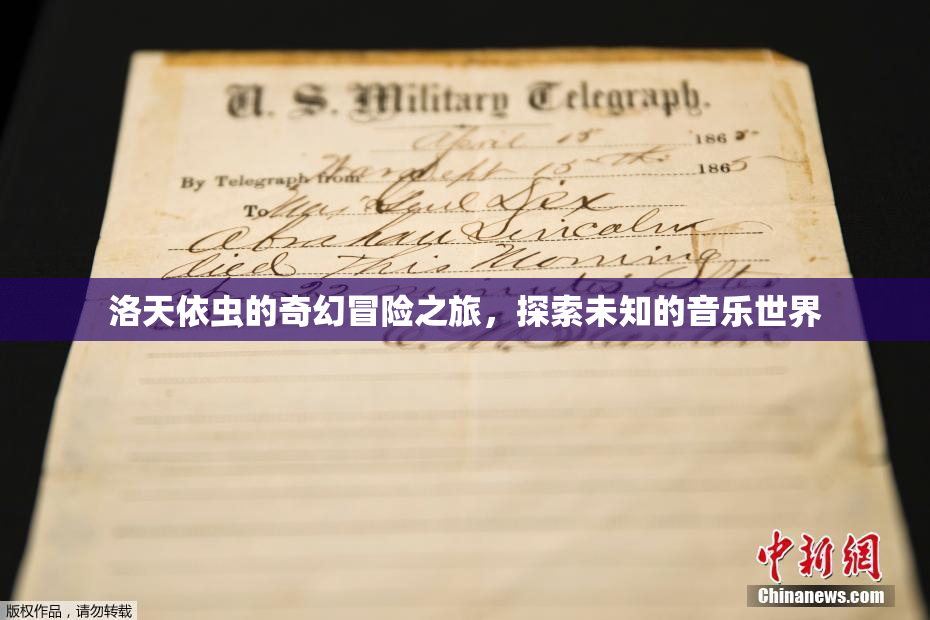 U. S. Military Telegraph.
April 15 1865
By Telegraph from War Dept 15th 1865
To Maj Genl Dix
Abraham Lincoln
died This Morning
at 22 minutes after
洛天依虫的奇幻冒险之旅，探索未知的音乐世界
E. M. Stanton
中新網
Chinanews.com
版权作品，请勿转载